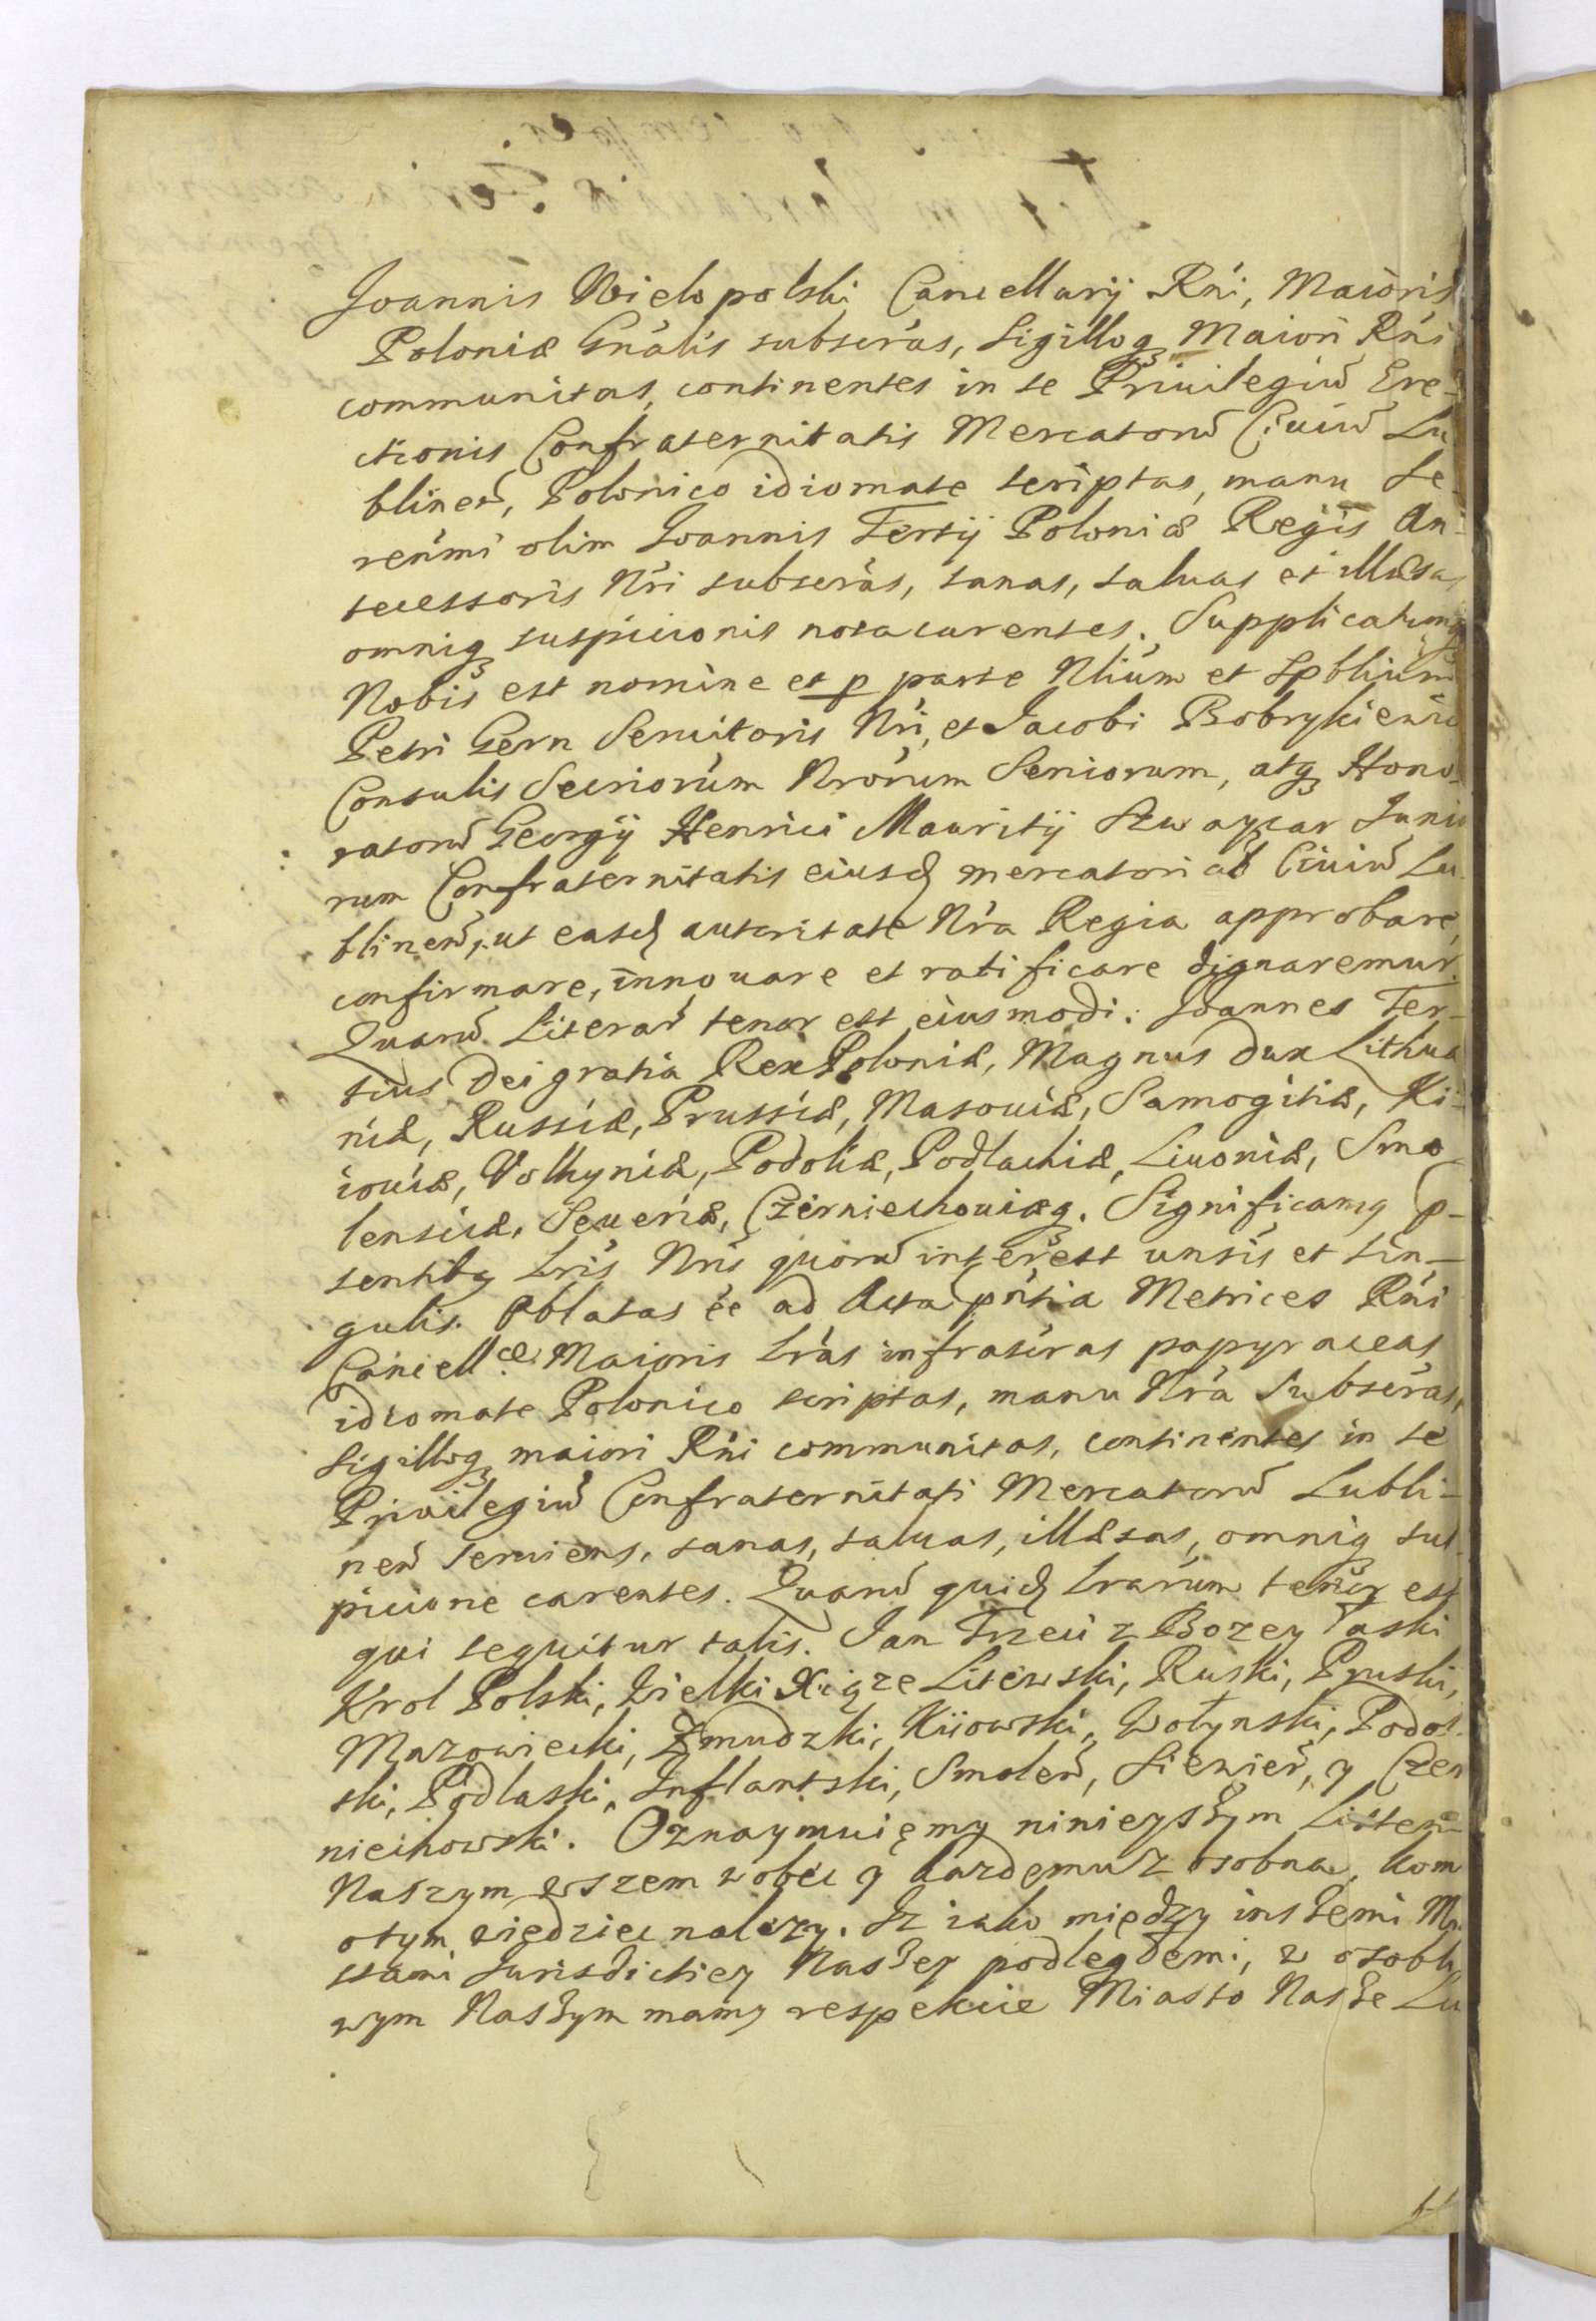 Joannis Wielopolski Cancellarij Rńi, Maioris
Poloniæ Gnális subscrás, Sigilloq Maiori Rńi
communitas, continentes in se Priuilegiũ Ere-
ctionis Confraternitatis Mercatorũ Ciuiũ Lu
blineñ, Polonico idiomate scriptas, manu Se-
renimi olim Joannis Tertij Poloniæ Regis An-
tecessoris Nri subscrás, sanas, saluas et illæsas
omniq suspicionis nota carentes. Supplicatumq
Nobis est nomine et p parte Nlium et Spblium
Petri Gern Seruitoris Nri, et Jacobi Bobrykiewic
Consulis Secriorum Nrorum Seniorum, atq Hono-
ratorũ Georgij Henrici Mauritij Szwaycar Junio
rum Confraternitatis eiusd mercatoriæ Ciuiũ Lu
blineñ, ut easd autoritate Nra Regia approbare,
confirmare, innouare et ratificare dignaremur.
Quarũ Literarũ tenor est eiusmodi: Joannes Ter-
tius Dei gratia Rex Poloniæ, Magnus Dux Lithua
niæ, Russiæ, Prussiæ, Masouiæ, Samogitiæ, Ki-
iouiæ, Volhyniæ, Podoliæ, Podlachiæ, Liuoniæ, Smo-
lensciæ, Seueriæ, Czerniechouiæq. Significamq p-
sentibq Lris Nris quorũ interest unsis et sin-
gulis. Oblatas ee ad Acta pńtia Metrices Rńi
Cancellæ Maioris Lras infrascras papyraceas
idiomate Polonico scriptas, manu Nra Subscras,
Sigilloq maiori Rńi communitas, continentes in se
Priuilegiũ Confraternitati Mercatorũ Lubli-
neñ seruiens, sanas, saluas, illæsas, omniq sus
picione carentes. Quarũ quid Lrarum tenor est
qui sequitur talis. Jan Trzeci z Bozey łaski
Krol Polski, Wielki Xiąze Litewski, Ruski, Pruski,
Mazowiecki, Zmudzki, Kiiowski, Wołynski, Podol
ski, Podlaski, Inflantski, Smoleñ, Siewier, y Czer
niechowski. Oznaymuięmy ninieyszym Listem
Naszym wszem wobec y kazdemu z osobna, kom
otym wiedziec nalezy. Iz iako między inszemi Mia
stami Jurisdictiey Naszey podległemi, w osobli
wym Naszym mamy respekcie Miasto Nasze Lu